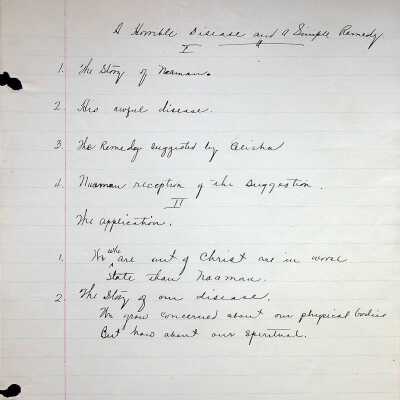 A Horrible Disease and A Simple Remedy
I
1. The Story of Naaman.
2. His awful disease.
3. The Remedy suggested by Elisha
4. Naaman reception of the suggestion.
II
The application.
1. We who are out of Christ are in worse
state than Naaman.
2. The Story of our disease.
We grow concerned about our physical bodies
But how about our spiritual.